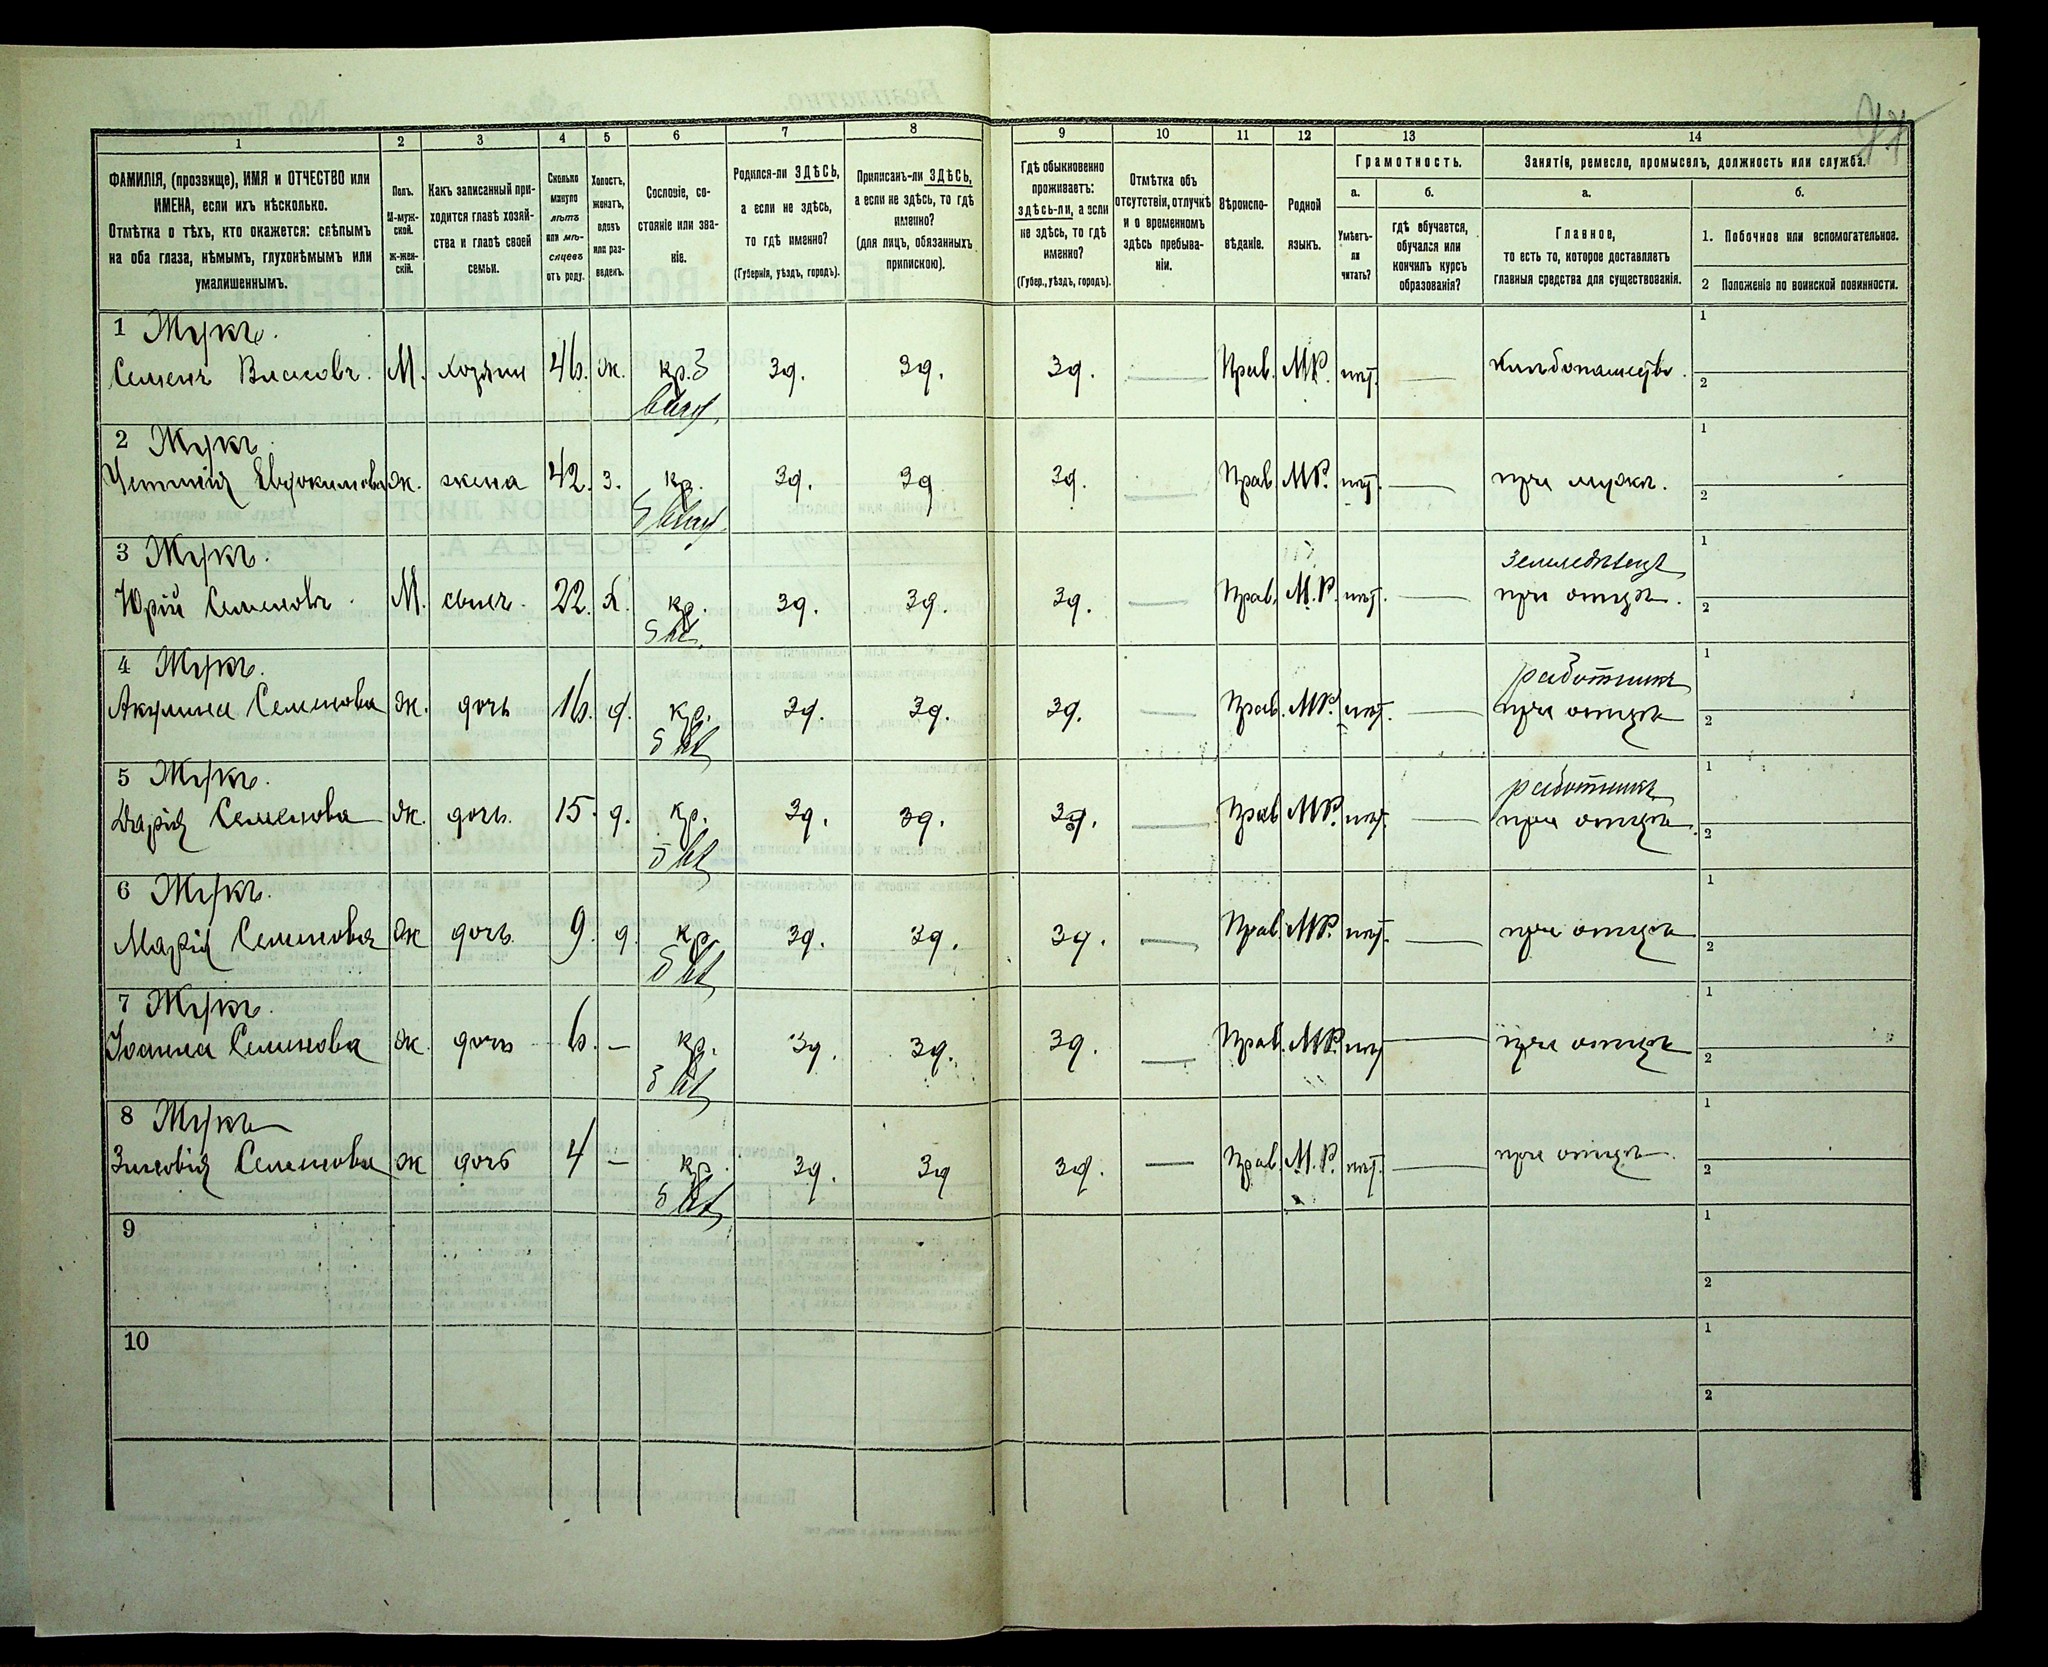 1 2 3 4 5 6 7 8 9 10 11 12 13 14
ФАМИЛІЯ, (прозвище), ИМЯ и ОТЧЕСТВО или ИМЕНА, если ихъ нѣсколько.
Отмѣтка о тѣхъ, кто окажется: слѣпымъ на оба глаза, нѣмымъ, глухонѣмымъ или умалишеннымъ.
Полъ. М-мужской. Ж-женскій.
Какъ записанный приходится главѣ хозяйства и главѣ своей семьи.
Сколько минуло лѣтъ или мѣсяцевъ отъ роду.
Холостъ, женатъ, вдовъ или разведенъ.
Сословіе, состояніе или званіе.
Родился-ли ЗДѢСЬ, а если не здѣсь, то гдѣ именно?
(Губернія, уѣздъ, городъ).
Приписанъ-ли ЗДѢСЬ, а если не здѣсь, то гдѣ именно?
(для лицъ, обязанныхъ припискою).
Гдѣ обыкновенно проживаетъ: здѣсь-ли, а если не здѣсь, то гдѣ именно?
(Губер., уѣздъ, городъ).
Отмѣтка объ отсутствіи, отлучкѣ и о временномъ здѣсь пребываніи.
Вѣроисповѣданіе.
Родной языкъ.
Грамотность.
а. б.
Умѣетъ-ли читать?
гдѣ обучается, обучался или кончилъ курсъ образованія?
Занятіе, ремесло, промыселъ, должность или служба.
а. б.
Главное,
то есть то, которое доставляетъ главныя средства для существованія.
1. Побочное или вспомогательное.
2 Положеніе по воинской повинности.
1 Жукъ.
Семенъ Власовъ. М. хозяин 46. ж. кр. зд. зд. зд. — Прав. МР. нѣт. — хлѣбопашество. 1 2
2 Жукъ.
Евдокимова ж. жена 42. з. кр. зд. зд зд. — Прав. МР. нѣт. — при мужѣ. 1 2
3 Жукъ. Земледѣлец
Юрій Семеновъ. М. сынъ. 22. х. кр. зд. зд. зд. — Прав. М.Р. нѣт. — при отцѣ. 1 2
4 Жукъ. работник
Акулина Семенова ж. дочь 16. д. кр. зд. зд. зд. — Прав. МР. нѣт. — при отцѣ 1 2
5 Жукъ. работник
Дарія Семенова ж. дочь. 15. д. кр. зд. зд. зд. — Прав МР. нѣт. — при отцѣ. 1 2
6 Жукъ.
Марія Семенова ж дочь. 9. д. кр. зд. зд. зд. — Прав. МР. нѣт. — при отцѣ 1 2
7 Жукъ.
Іоанна Семенова ж. дочь 6. — кр. зд. зд. зд. — Прав. МР. нѣт — при отцѣ 1 2
8 Жукъ
Зиновія Семенова ж дочь 4 — кр. зд. зд зд. — Прав. М.Р. нѣт. — при отцѣ. 1 2
9 1 2
10 1 2